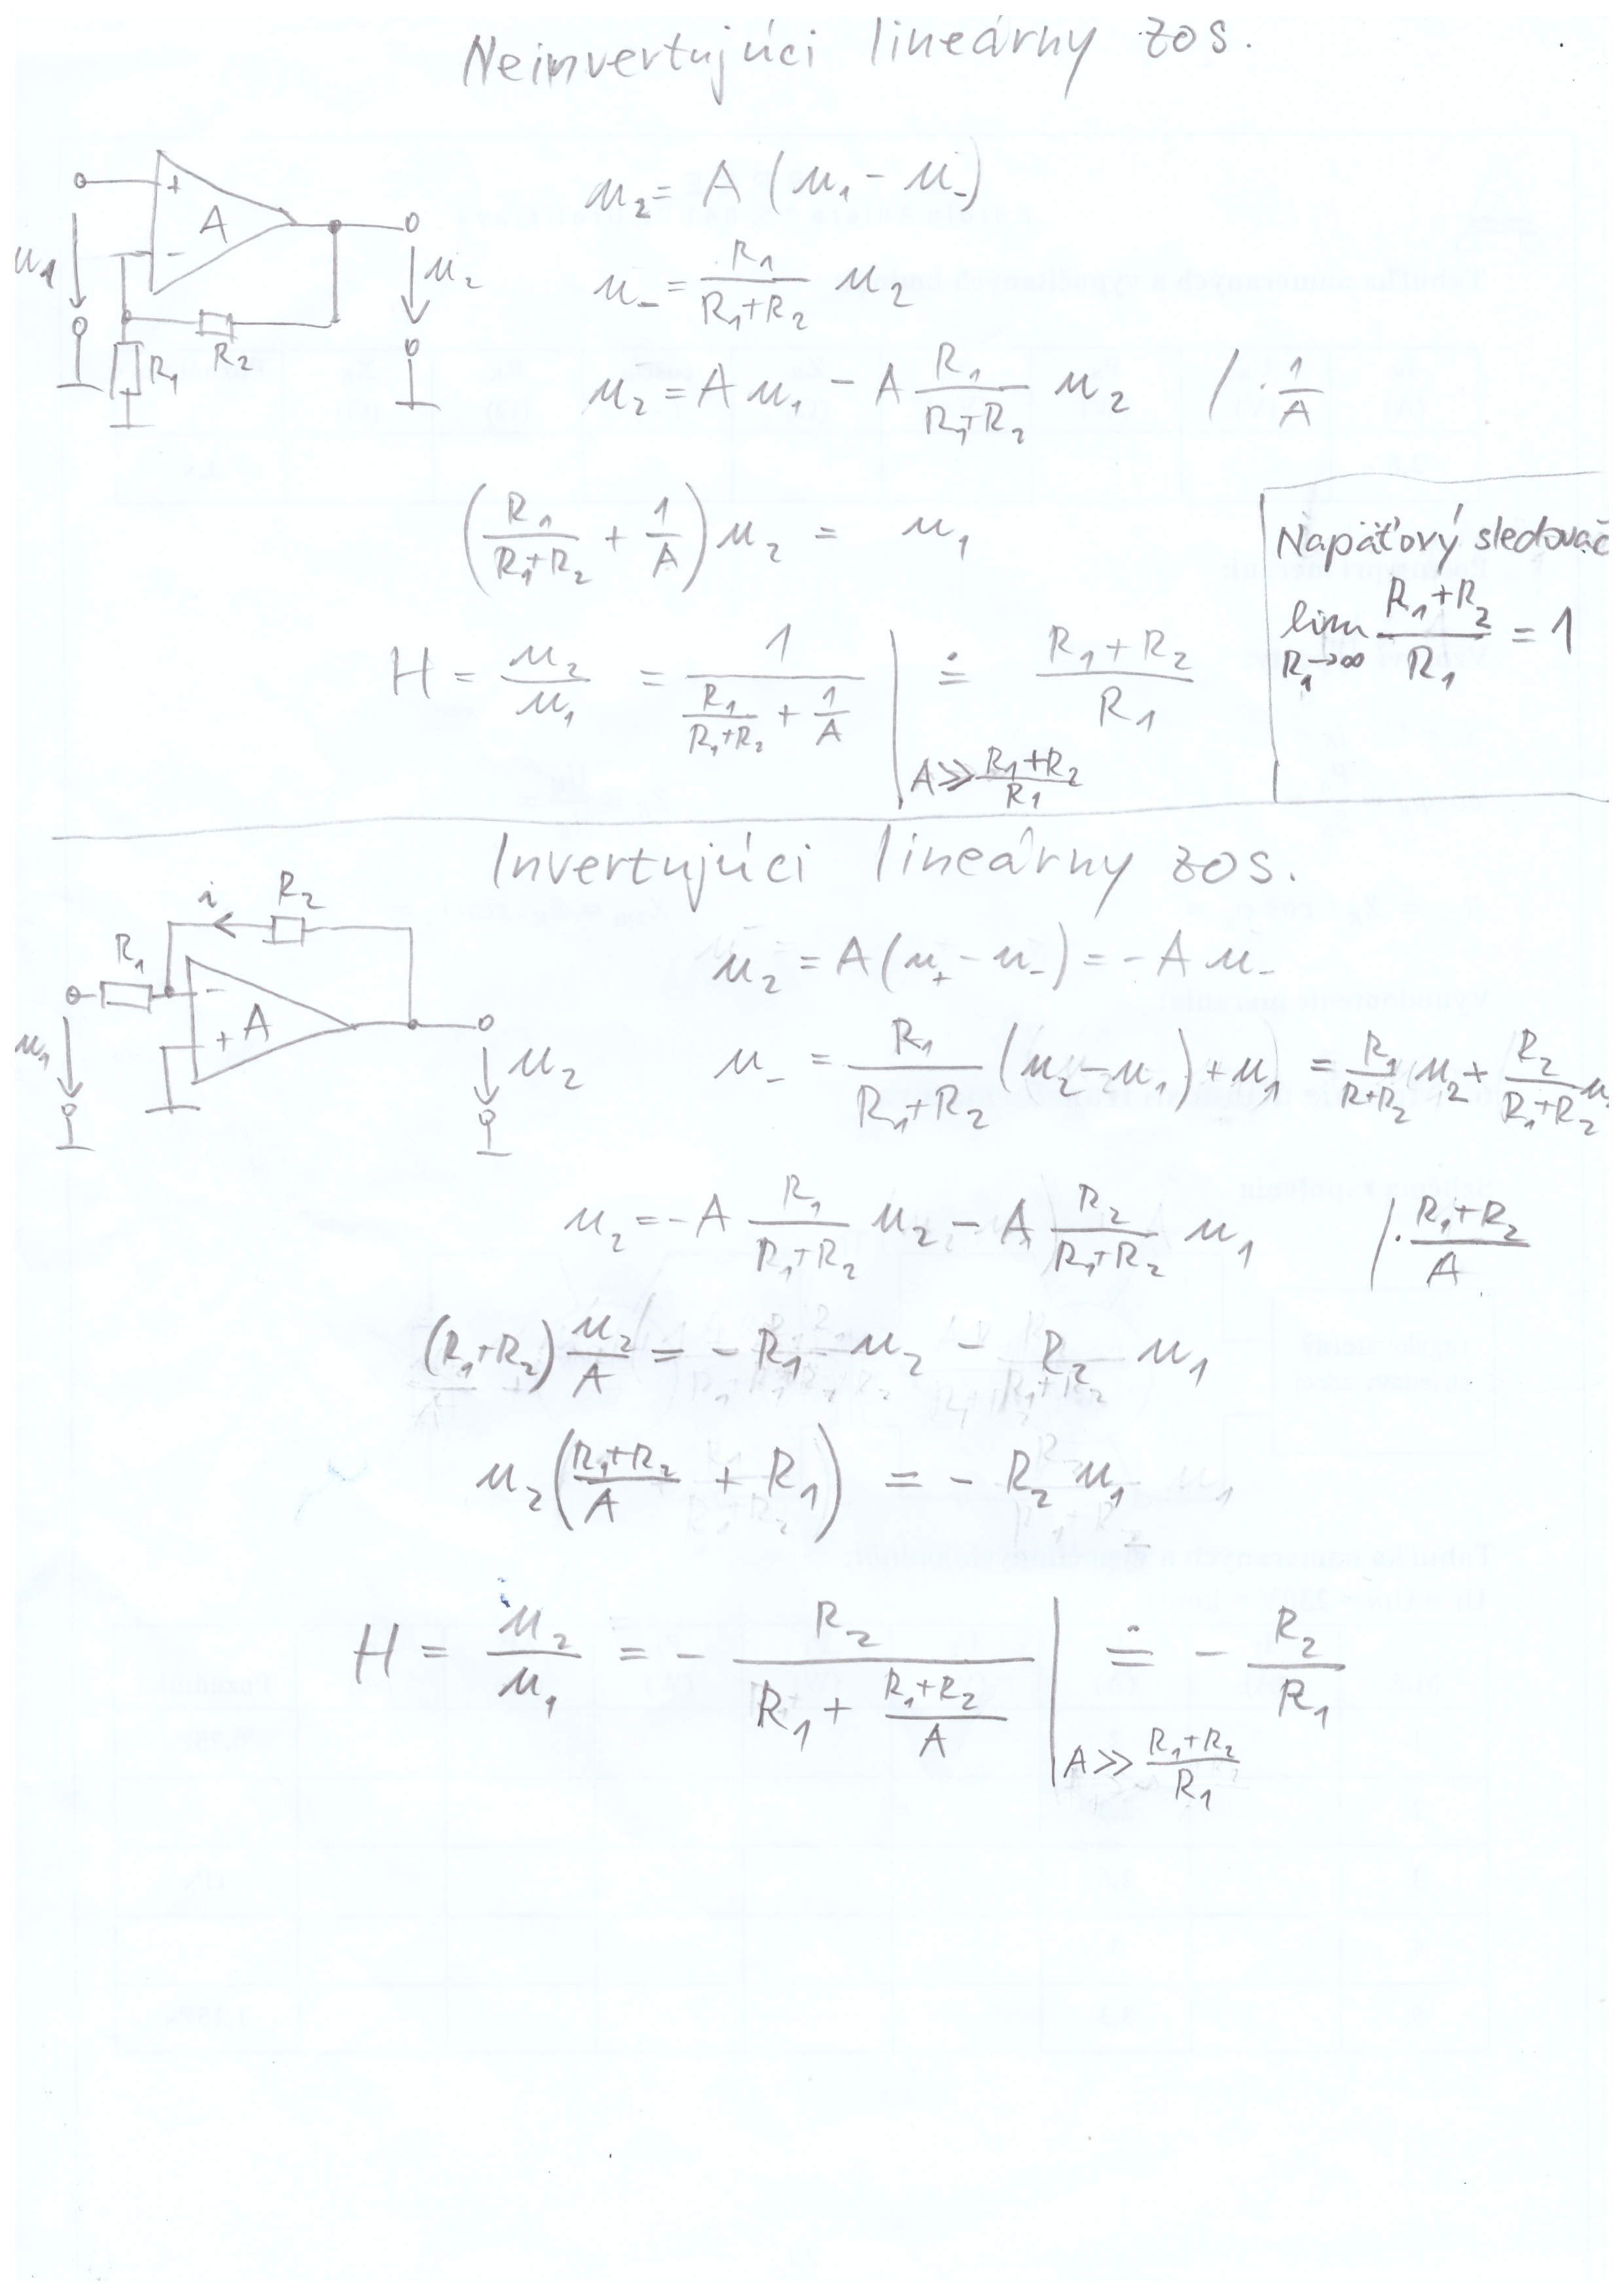 Neinvertujúci lineárny zos.
+
A
-
u₁
u₂
R₂
R₁
u₂ = A (u₁ - u₋)
u₋ = R₁/(R₁+R₂) u₂
u₂ = A u₁ - A R₁/(R₁+R₂) u₂ /· 1/A
(R₁/(R₁+R₂) + 1/A) u₂ = u₁
Napäťový sledovač
lim R₁→∞ (R₁+R₂)/R₁ = 1
H = u₂/u₁ = 1/(R₁/(R₁+R₂) + 1/A) | A ≫ (R₁+R₂)/R₁ ≐ (R₁+R₂)/R₁
Invertujúci lineárny zos.
i
R₂
R₁
-
+ A
u₁
u₂
u₂ = A(u₊ - u₋) = - A u₋
u₋ = R₁/(R₁+R₂) (u₂ - u₁) + u₁ = R₁/(R+R₂) u₂ + R₂/(R₁+R₂) u
u₂ = - A R₁/(R₁+R₂) u₂ - A R₂/(R₁+R₂) u₁ /· (R₁+R₂)/A
(R₁+R₂) u₂/A = - R₁ u₂ - R₂ u₁
u₂ ((R₁+R₂)/A + R₁) = - R₂ u₁
H = u₂/u₁ = - R₂/(R₁ + (R₁+R₂)/A) | A ≫ (R₁+R₂)/R₁ ≐ - R₂/R₁